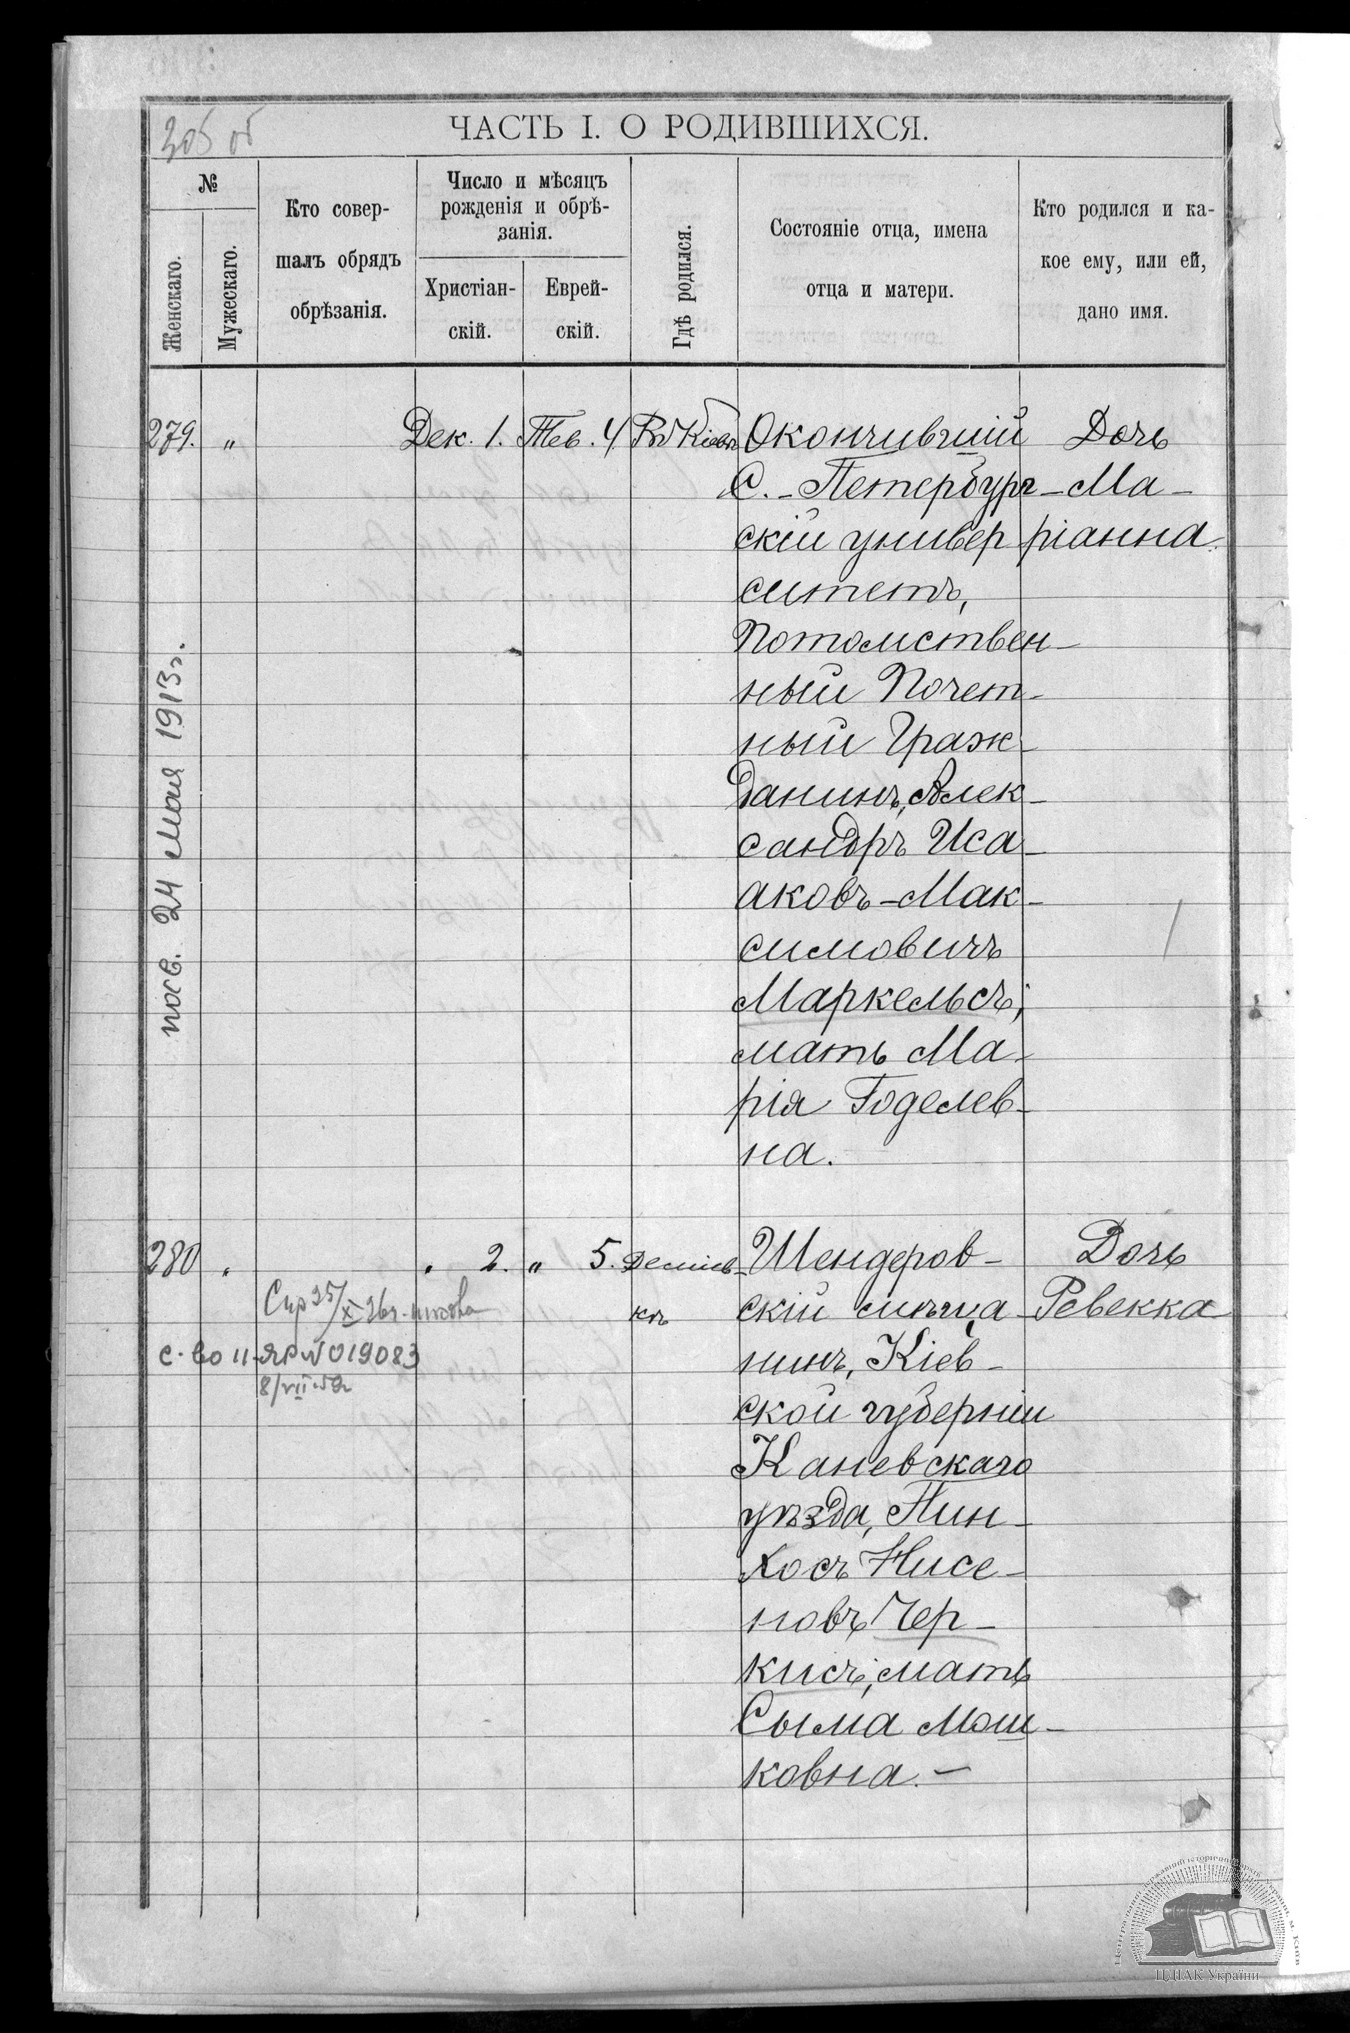 305 об
ЧАСТЬ I. О РОДИВШИХСЯ.
№
Женскаго.
Мужескаго.
Кто совер-
шалъ обрядъ
обрѣзанія.
Число и мѣсяцъ
рожденія и обрѣ-
занія.
Христіан-
скій.
Еврей-
скій.
Гдѣ родился.
Состояніе отца, имена
отца и матери.
Кто родился и ка-
кое ему, или ей,
дано имя.
279. „ Дек. 1. Тев. 4. Въ Кіевѣ
Окончившій
С.-Петербург-
скій универ
ситетъ,
Потомствен-
ный Почет-
ный Граж-
данинъ, Алек-
сандръ Иса-
аковъ-Мак-
симовичъ
Маркельсъ;
мать Ма-
рія Годелев-
на.
Дочь
Ма-
ріанна.
посв. 24 Мая 1913 г.
280 „ „ 2. „ 5. Деміев-
кѣ
Шендеров-
скій мѣща-
нинъ, Кіев-
ской губерніи
Каневскаго
уѣзда, Пин-
хосъ Нисе-
новъ Чер-
кисъ; мать
Сыма Мош-
ковна.-
Дочь
Ревекка
с-во II-ЯР № 019083
ЦДІАК України